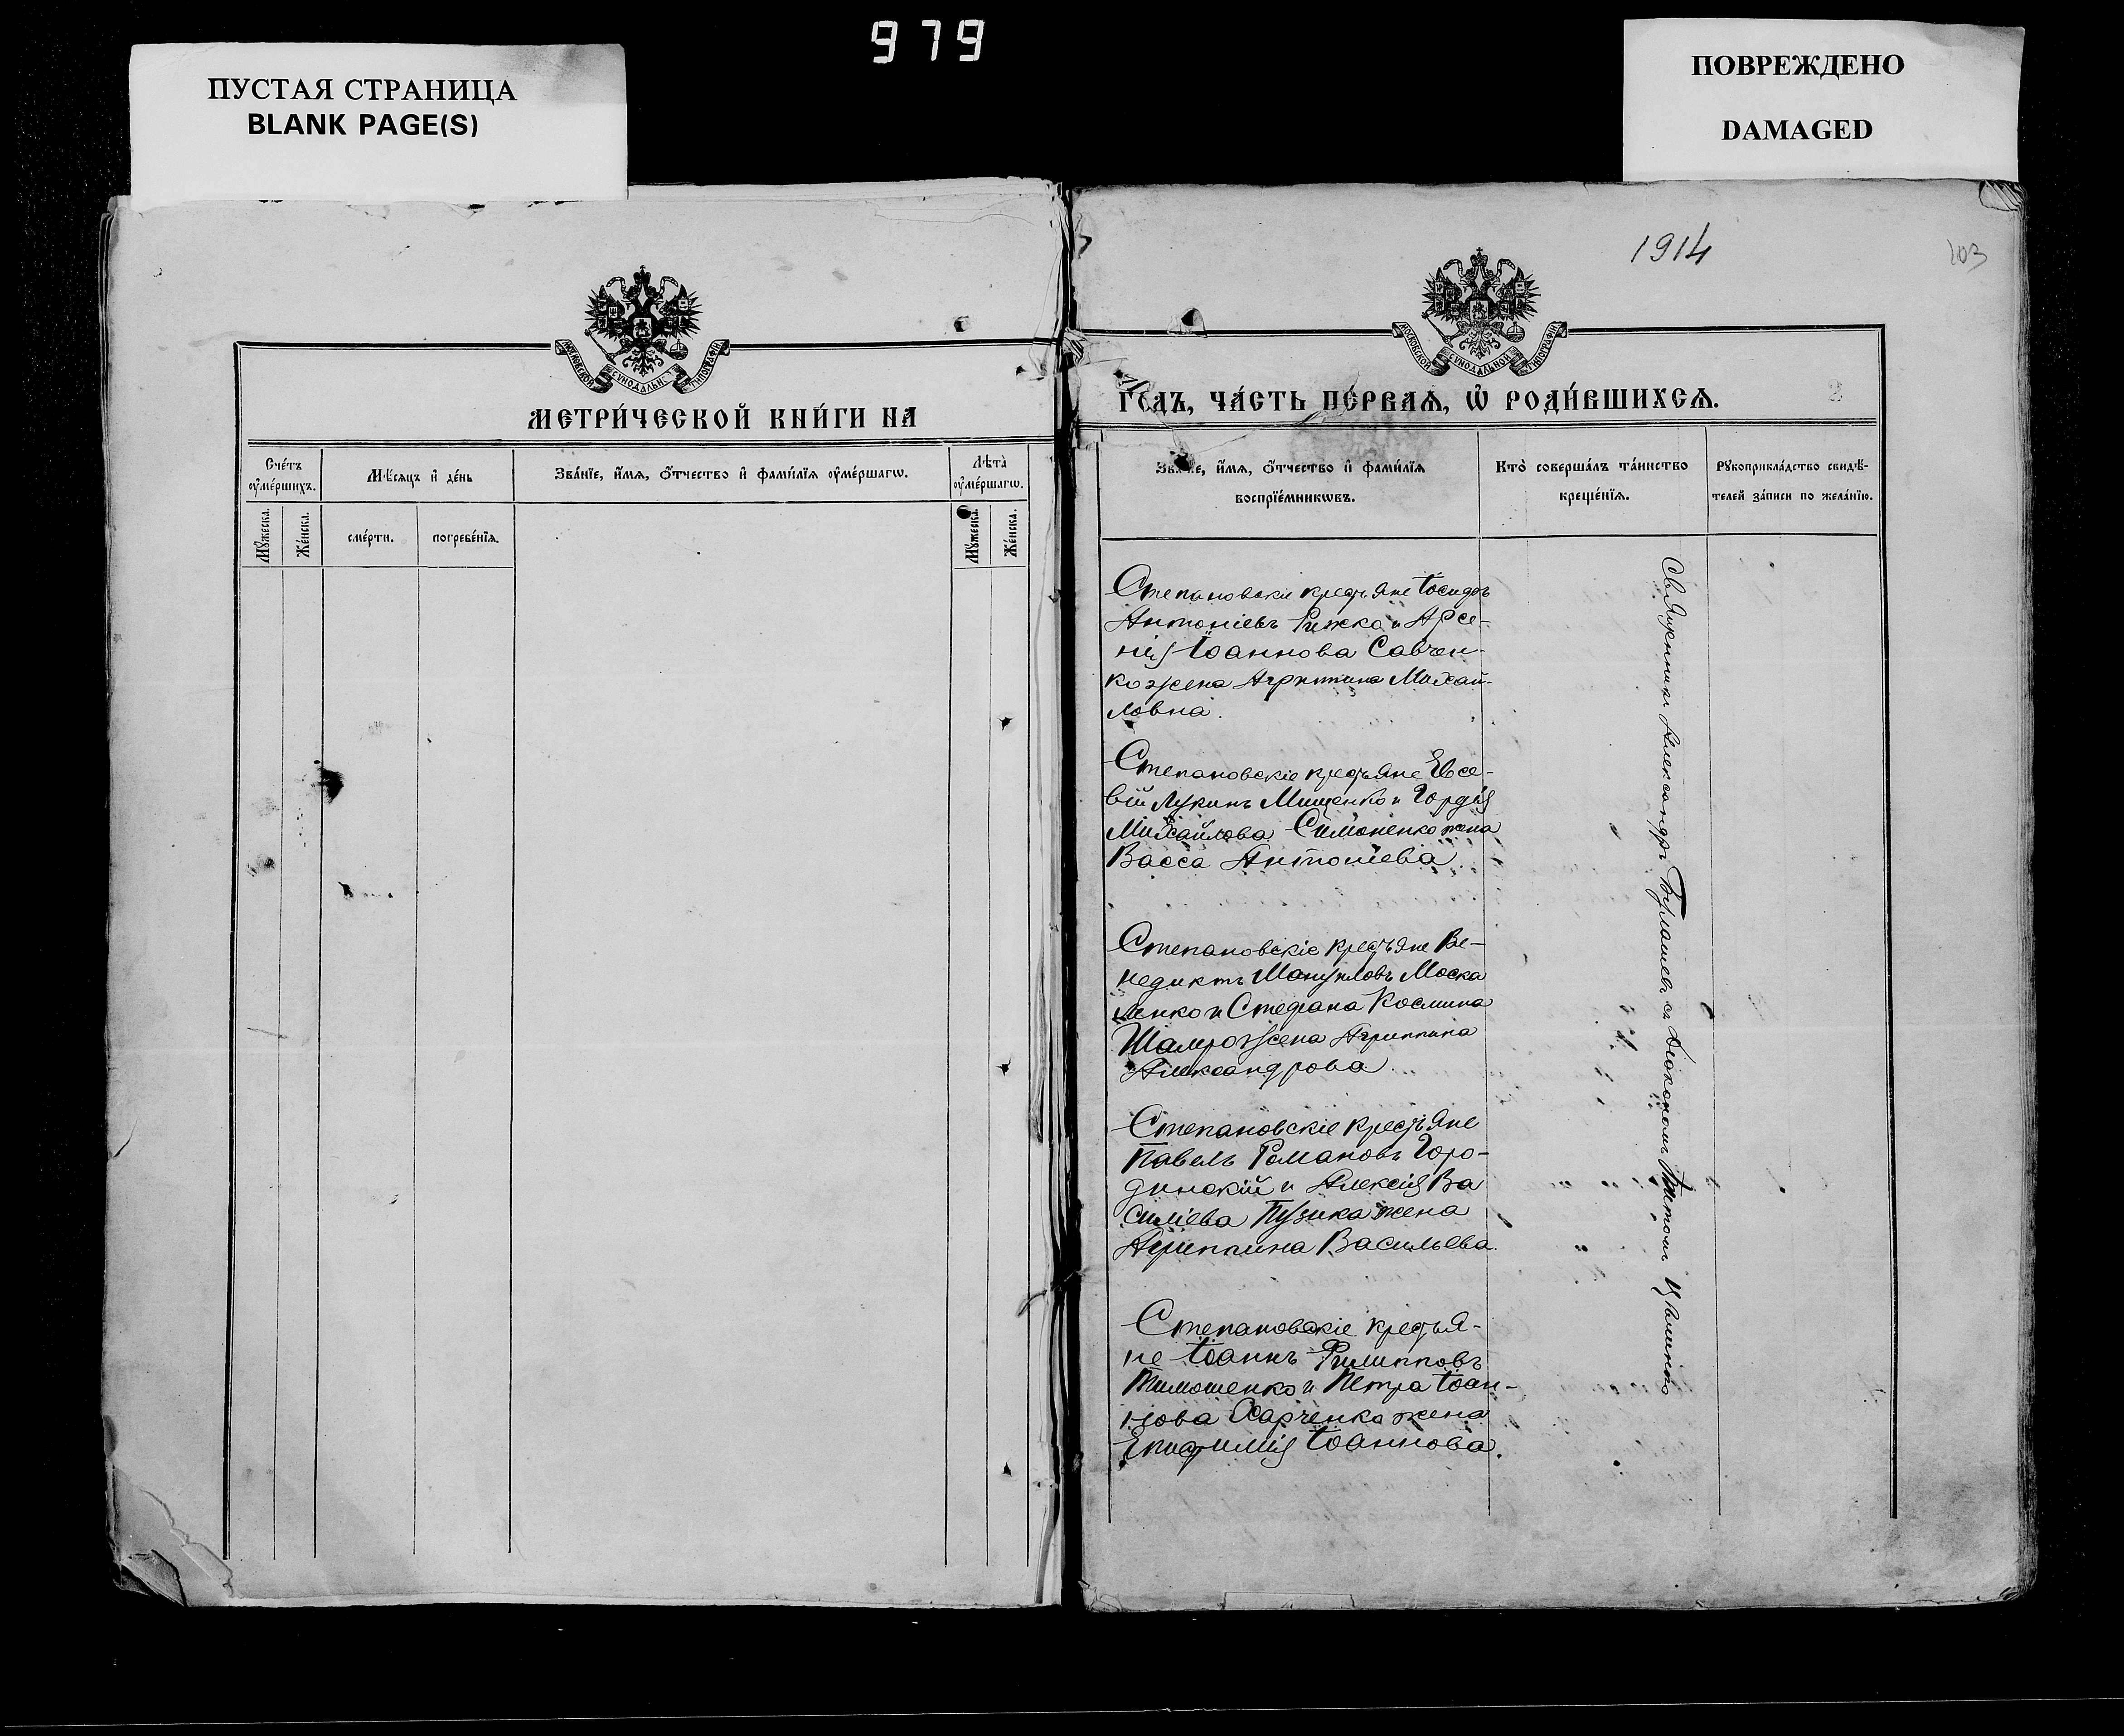 979
ПУСТАЯ СТРАНИЦА
BLANK PAGE(S)
ПОВРЕЖДЕНО
DAMAGED
1914
103
МОСКОВСКОЙ СУНОДАЛЬН ТИПОГРАФІИ
МЕТРИ́ЧЕСКОЙ КНИ́ГИ НА
Сче́тъ ᲂу҆ме́ршихъ.
Мѣ́сяцъ и҆ де́нь
Зва́нїе, и҆́мѧ, ѻ҆́тчество и҆ фамі́лїѧ ᲂу҆ме́ршагѡ.
Лѣ́та ᲂу҆ме́ршагѡ.
Мꙋ́жеска.
Же́нска.
сме́рти.
погребе́нїѧ.
Мꙋ́жеска.
Же́нска.
МОСКОВСКОЙ СУНОДАЛЬНОЙ ТИПОГРАФІИ
ГО́ДЪ, ЧА́СТЬ ПЕ́РВАѦ, Ѽ РОДИ́ВШИХСѦ.
Зва́нїе, и҆́мѧ, ѻ҆́тчество и҆ фамі́лїѧ
воспрїе́мникѡвъ.
Кто̀ соверша́лъ та́инство
креще́нїѧ.
Рꙋкоприкла́дство свидѣ́-
телей за́писи по жела́нїю.
Степановскіе крест҃ьяне Іосифъ
Антоніевъ Рижко и Арсе-
нія Іоаннова Савчен-
ко жена Агриппина Михай-
ловна.
Степановскіе крест҃ьяне Евсе-
вій Лукинъ Мищенко и Гордія
Михайлова Симоненко жена
Васса Антоніева.
Степановскіе крест҃ьяне Ве-
недиктъ Мануиловъ Моска
ленко и Стефана Космина
Шамро жена Агриппина
Александрова.
Степановскіе крест҃ьяне
Павелъ Романовъ Горо-
динскій и Алексія Ва
силіева Пузика жена
Агриппина Васильева.
Степановскіе крест҃ья-
не Іоаннъ Филипповъ
Тимошенко и Петра Іоан-
нова Харченко жена
Епистимія Іоаннова.
Священникъ Александръ съ діакономъ Титомъ